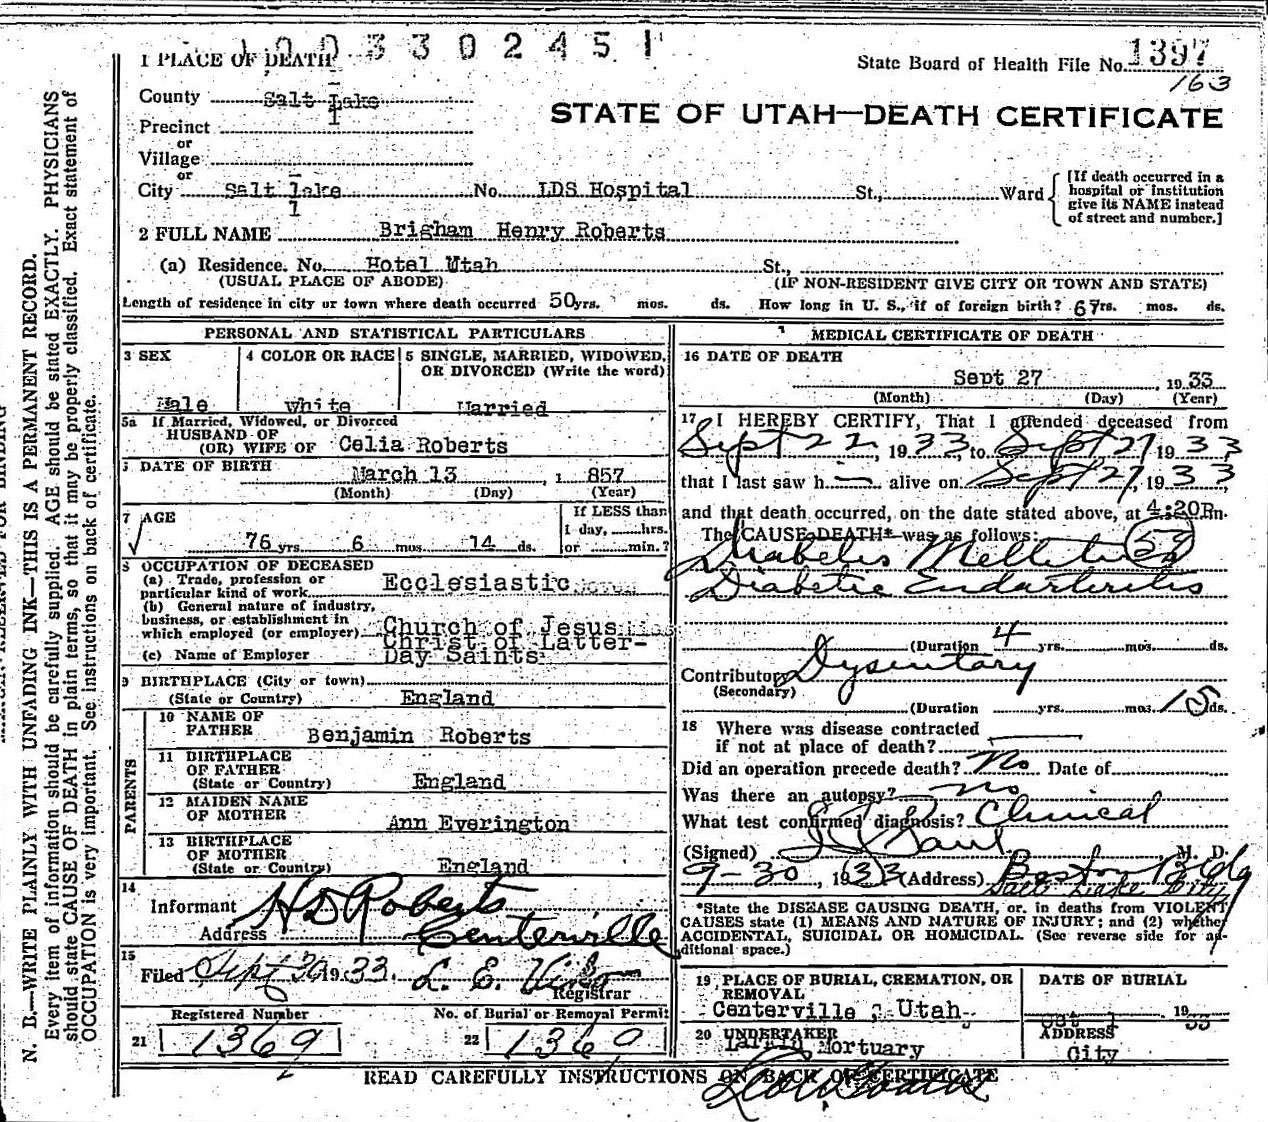 1003302451
1 PLACE OF DEATH
State Board of Health File No. 1397
163
County Salt Lake
1
STATE OF UTAH—DEATH CERTIFICATE
Precinct
or
Village
or
City Salt Lake No. LDS Hospital St., Ward
1
[If death occurred in a hospital or institution give its NAME instead of street and number.]
2 FULL NAME Brigham Henry Roberts
(a) Residence. No. Hotel Utah St.,
(USUAL PLACE OF ABODE) (IF NON-RESIDENT GIVE CITY OR TOWN AND STATE)
Length of residence in city or town where death occurred 50 yrs. mos. ds. How long in U. S., if of foreign birth? 67rs. mos. ds.
PERSONAL AND STATISTICAL PARTICULARS
3 SEX
Male
4 COLOR OR RACE
White
5 SINGLE, MARRIED, WIDOWED, OR DIVORCED (Write the word)
Married
5a If Married, Widowed, or Divorced
HUSBAND OF
(OR) WIFE OF Celia Roberts
DATE OF BIRTH
March 13, 1857
(Month) (Day) (Year)
7 AGE
76 yrs. 6 mos. 14 ds.
If LESS than
1 day, hrs.
or min.?
8 OCCUPATION OF DECEASED
(a) Trade, profession or
particular kind of work Ecclesiastic
(b) General nature of industry,
business, or establishment in
which employed (or employer) Church of Jesus
Christ of Latter-
(c) Name of Employer Day Saints
9 BIRTHPLACE (City or town)
(State or Country) England
PARENTS
10 NAME OF
FATHER Benjamin Roberts
11 BIRTHPLACE
OF FATHER
(State or Country) England
12 MAIDEN NAME
OF MOTHER Ann Everington
13 BIRTHPLACE
OF MOTHER
(State or Country) England
14
Informant H D Roberts
Address Centerville
15
Filed Sept 30 1933. L. E.
Registrar
Registered Number
21 1369
No. of Burial or Removal Permit
22 1369
MEDICAL CERTIFICATE OF DEATH
16 DATE OF DEATH
Sept 27, 1933
(Month) (Day) (Year)
17 I HEREBY CERTIFY, That I attended deceased from
Sept 22, 1933 to Sept 27 1933
that I last saw h alive on Sept 27, 1933,
and that death occurred, on the date stated above, at 4:20P.m.
The CAUSE DEATH* was as follows:
Diabetis Mellitis 59
Diabetic Endarteritis
(Duration 4 yrs. mos. ds.
Contributory Dysentary
(Secondary)
(Duration yrs. mos. 15 ds.
18 Where was disease contracted
if not at place of death?
Did an operation precede death? No Date of
Was there an autopsy? no
What test confirmed diagnosis? Clinical
(Signed) Paul M. D.
9-30, 1933 (Address) Boston Bldg
Salt Lake City
*State the DISEASE CAUSING DEATH, or, in deaths from VIOLENT
CAUSES state (1) MEANS AND NATURE OF INJURY; and (2) whether
ACCIDENTAL, SUICIDAL OR HOMICIDAL. (See reverse side for ad-
ditional space.)
19 PLACE OF BURIAL, CREMATION, OR
REMOVAL
Centerville, Utah
DATE OF BURIAL
Oct 1 1933
20 UNDERTAKER
Larkin Mortuary
ADDRESS
City
READ CAREFULLY INSTRUCTIONS ON BACK OF CERTIFICATE
N. B.—WRITE PLAINLY WITH UNFADING INK—THIS IS A PERMANENT RECORD.
Every item of information should be carefully supplied. AGE should be stated EXACTLY. PHYSICIANS
should state CAUSE OF DEATH in plain terms, so that it may be properly classified. Exact statement of
OCCUPATION is very important. See instructions on back of certificate.